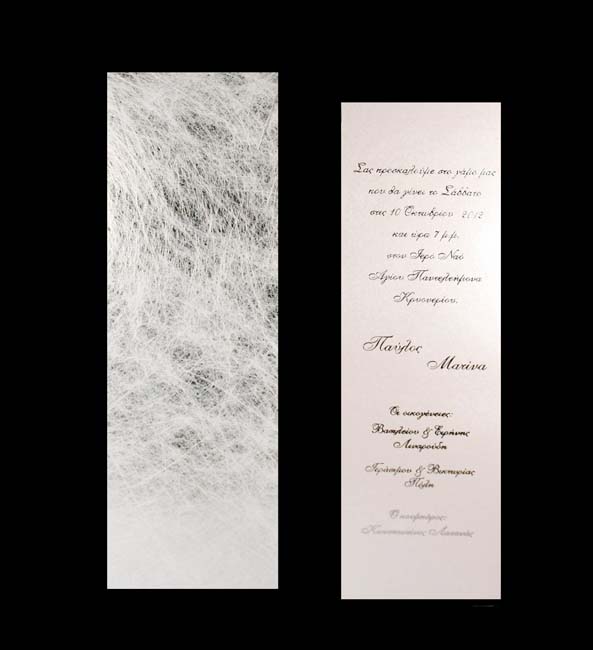 Σας προσκαλούμε στο γάμο μας
που θα γίνει το Σάββατο
στις 10 Οκτωβρίου 2012
και ώρα 7 μ.μ.
στον Ιερό Ναό
Αγίου Παντελεήμονα
Κρυονερίου.
Παύλος
Ματίνα
Οι οικογένειες:
Βασιλείου & Ειρήνης
Λιναρούδη
Γεράσιμου & Βικτωρίας
Πόλη
Ο κουμπάρος:
Κωνσταντίνος